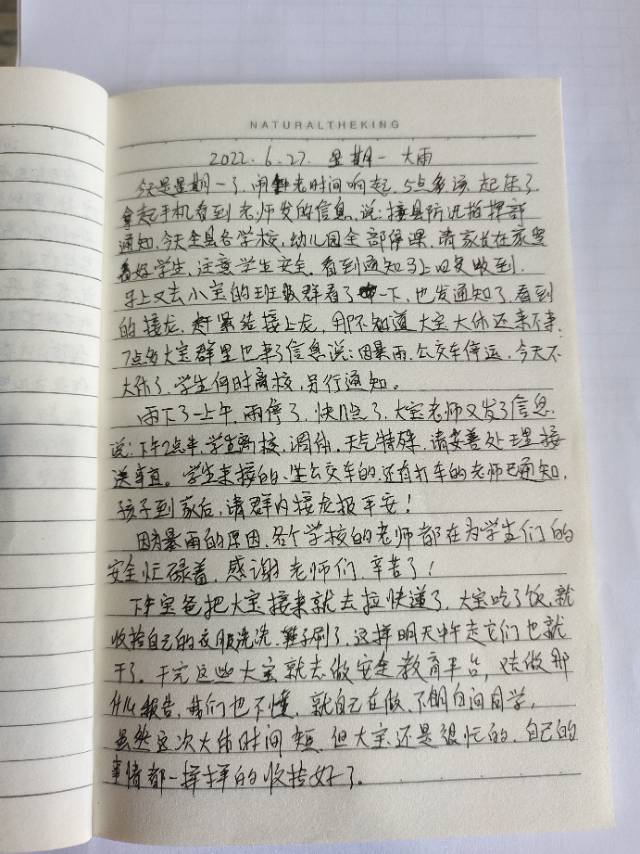 NATURALTHEKING
2022.6.27. 星期一 大雨
今天是星期一了,闹钟老时间响起,5点多该起床了
拿起手机看到老师发的信息,说:接县防汛指挥部
通知,今天全县各学校,幼儿园全部停课,请家长在家里
看好学生,注意学生安全。看到通知马上回复收到.
马上又去小宝的班级群看了一下,也发通知了,看到
的接龙,赶紧给接上龙,那不知道大宝大休还来不来.
7点多大宝群里也来了信息说:因暴雨,公交车停运,今天不
大休了,学生何时离校,另行通知。
雨下了一上午,雨停了,快1点了,大宝老师又发了信息
说:下午2点半,学生离校,调休,天气特殊,请妥善处理接
送事宜。学生来接的、坐公交车的,还有打车的老师已通知,
孩子到家后,请群内接龙报平安!
因为暴雨的原因,各个学校的老师都在为学生们的
安全忙碌着,感谢老师们,辛苦了!
下午宝爸把大宝接来就去拉快递了,大宝吃了饭,就
收拾自己的衣服洗洗,鞋子刷了,这样明天下午走它们也就
干了。干完这些大宝就去做安全教育平台,又去做那
什么报告,我们也不懂,就自己在做,不明白问同学,
虽然这次大休时间短,但大宝还是很忙的,自己的
事情都一样样的收拾好了。